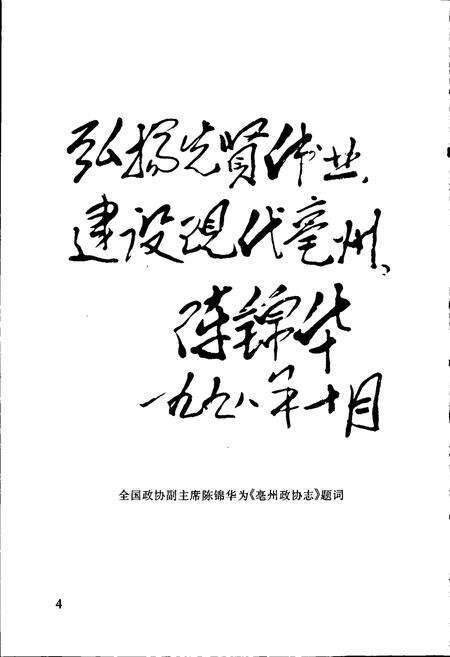 弘扬先贤伟业，
建设现代亳州、
陈锦华
一九九八年十月
全国政协副主席陈锦华为《亳州政协志》题词
4